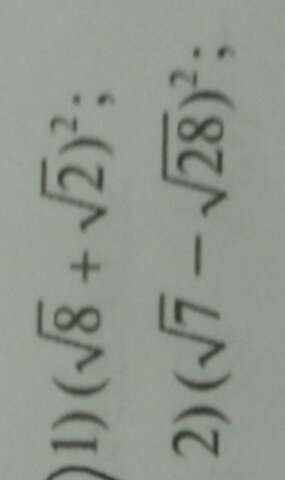 1) (√8 + √2)²;
2) (√7 − √28)²;